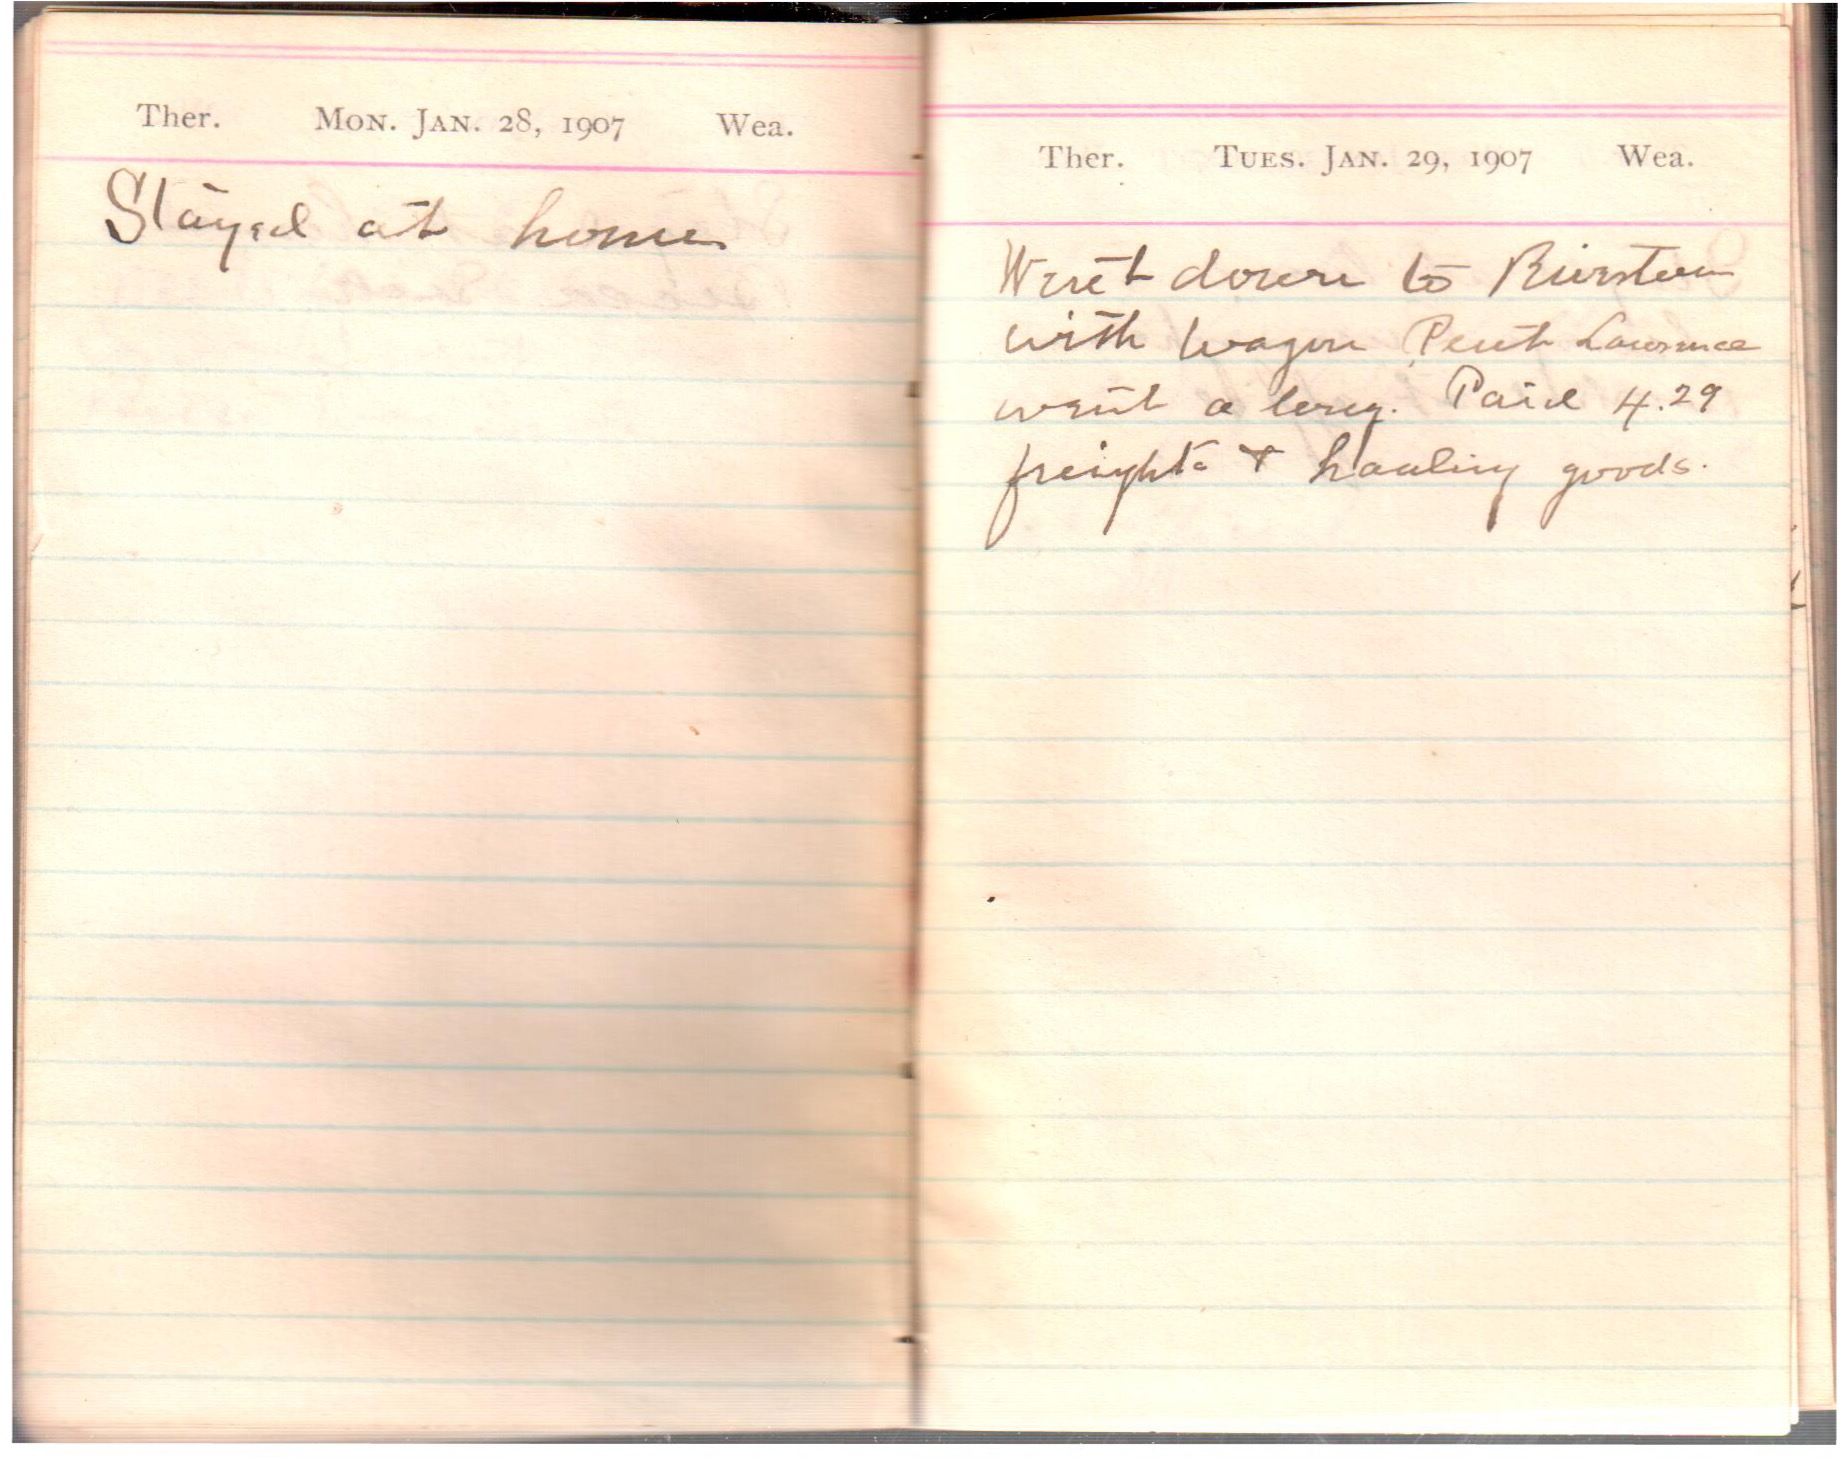 Ther. Mon. Jan. 28, 1907 Wea.
Stayed at home
Ther. Tues. Jan. 29, 1907 Wea.
Went down to
with wagon Lawrence
went a long. Paid 4.29
freight & hauling goods.